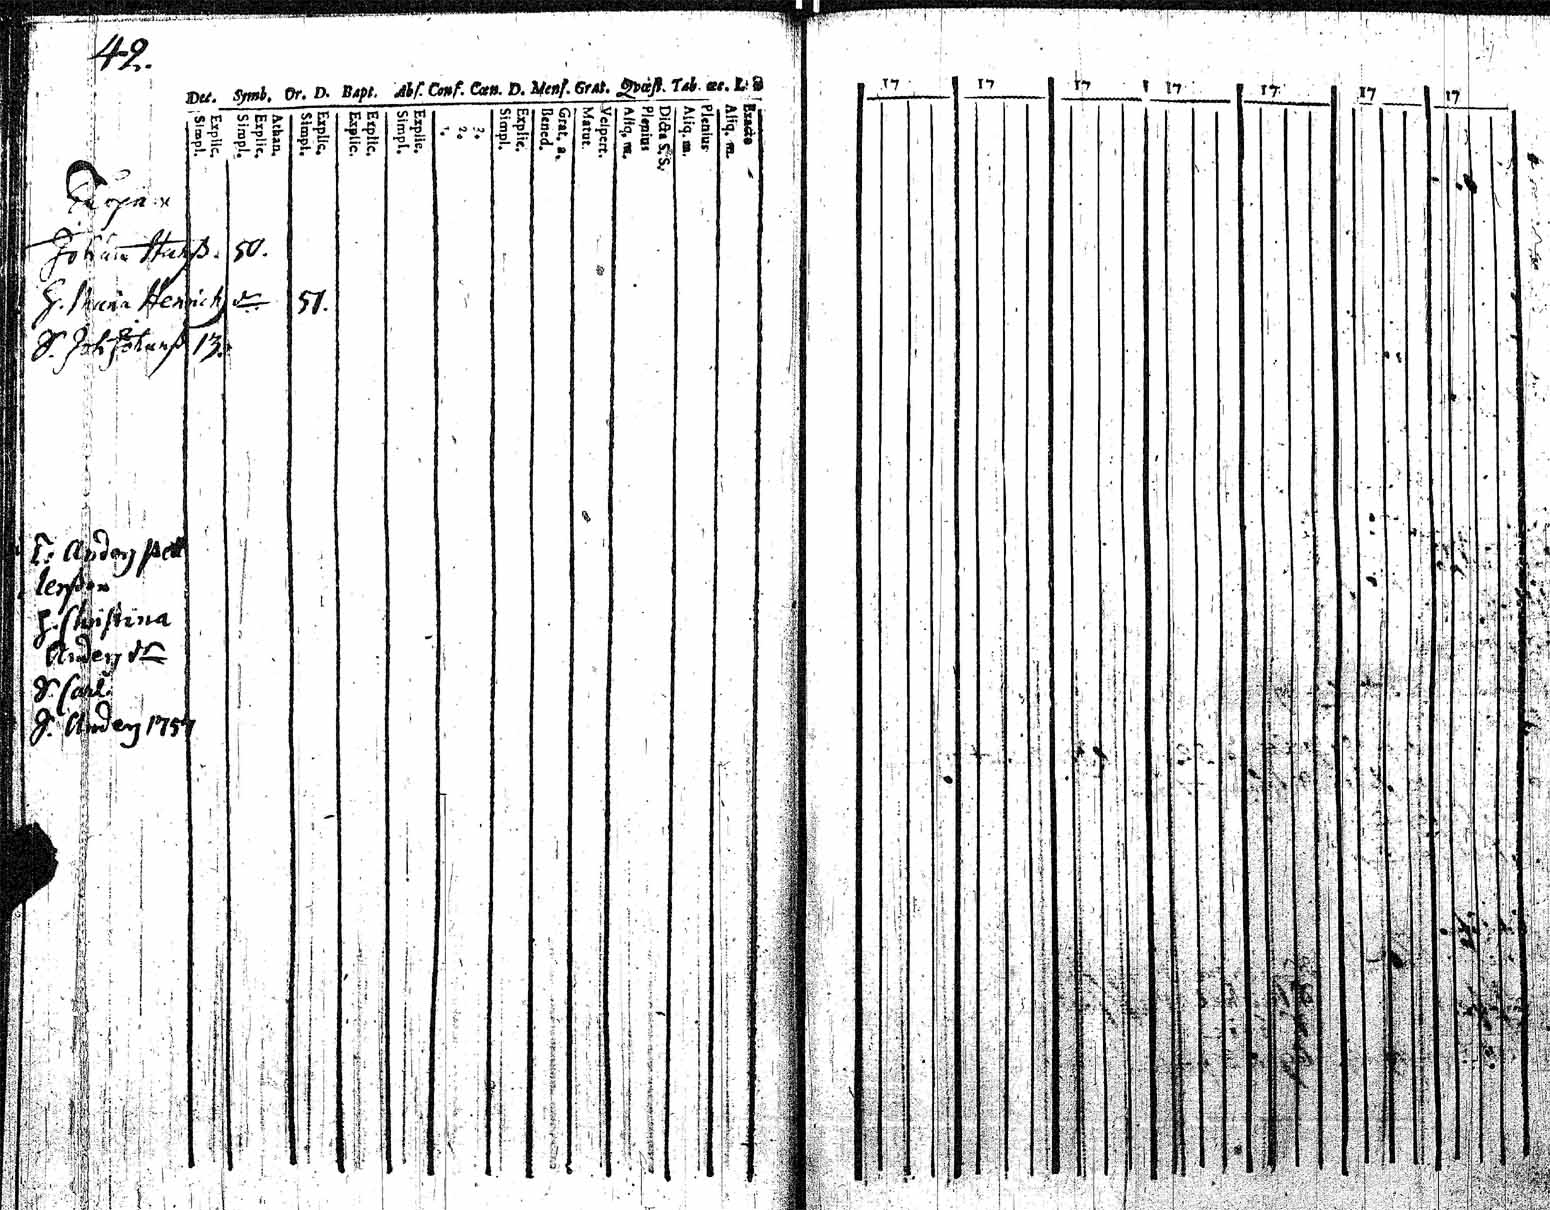 42.
Dec. Symb. Or. D. Bapt. Abs. Conf. Cœn. D. Mens. Grat. Qvæst. Tab. œc.
Simpl. Explic. Simpl. Explic. Athan. Simpl. Explic. Explic. Explic. Simpl. Explic. 1. 2. 3. Simpl. Explic. Bened. Grat. a. Matut. Vespert. Aliq. m. Plenius Dicta S. S. Aliq. m. Plenius Aliq. m. Exacte
17 17 17 17 17 17 17
Johan 50.
H. Maria Henrich 51.
S. Joh 13.
Anders Pet
terßon
H. Christina
Anders
S. Carl
S. Anders 1757